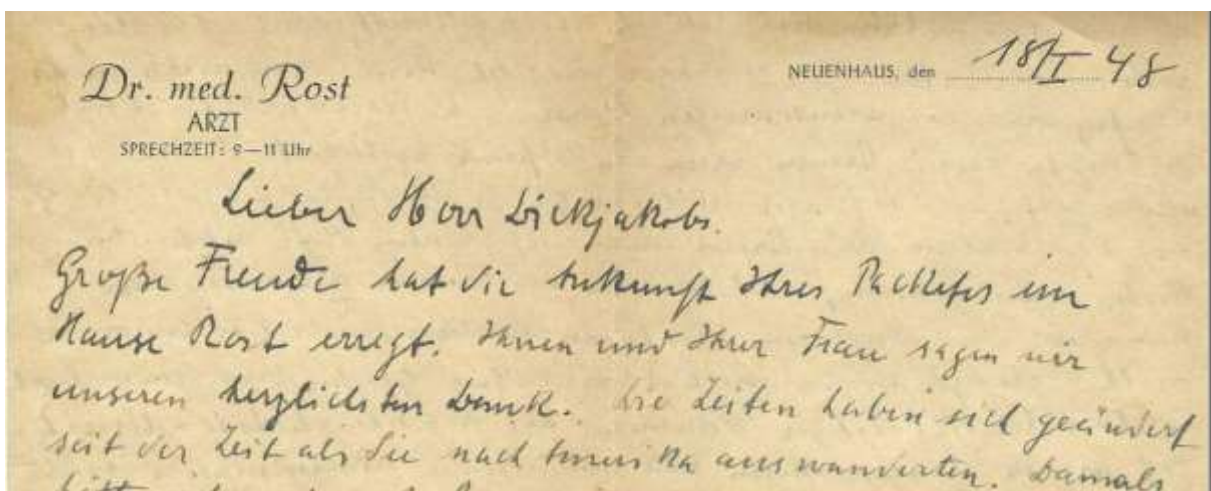 Dr. med. Rost
ARZT
SPRECHZEIT: 9—11 Uhr
NEUENHAUS, den 18/I 48
Lieber Herr Dickjakobs.
Große Freude hat die Ankunft Ihres Packetes im
Hause Rost erregt. Ihnen und Ihrer Frau sagen wir
unseren herzlichsten Dank. Die Zeiten haben sich geändert
seit der Zeit als Sie nach Amerika auswanderten. Damals